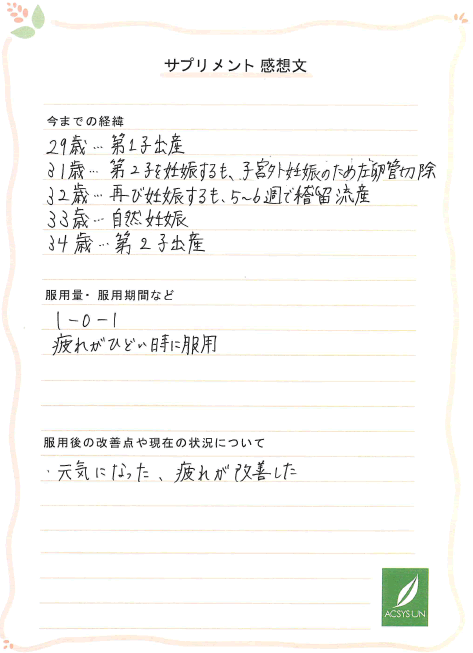 サプリメント 感想文
今までの経緯
29歳…第1子出産
31歳…第2子を妊娠するも、子宮外妊娠のため左卵管切除
32歳…再び妊娠するも、5~6週で稽留流産
33歳…自然妊娠
34歳…第2子出産
服用量・服用期間など
1-0-1
疲れがひどい時に服用
服用後の改善点や現在の状況について
・元気になった、疲れが改善した
ACSYSUN